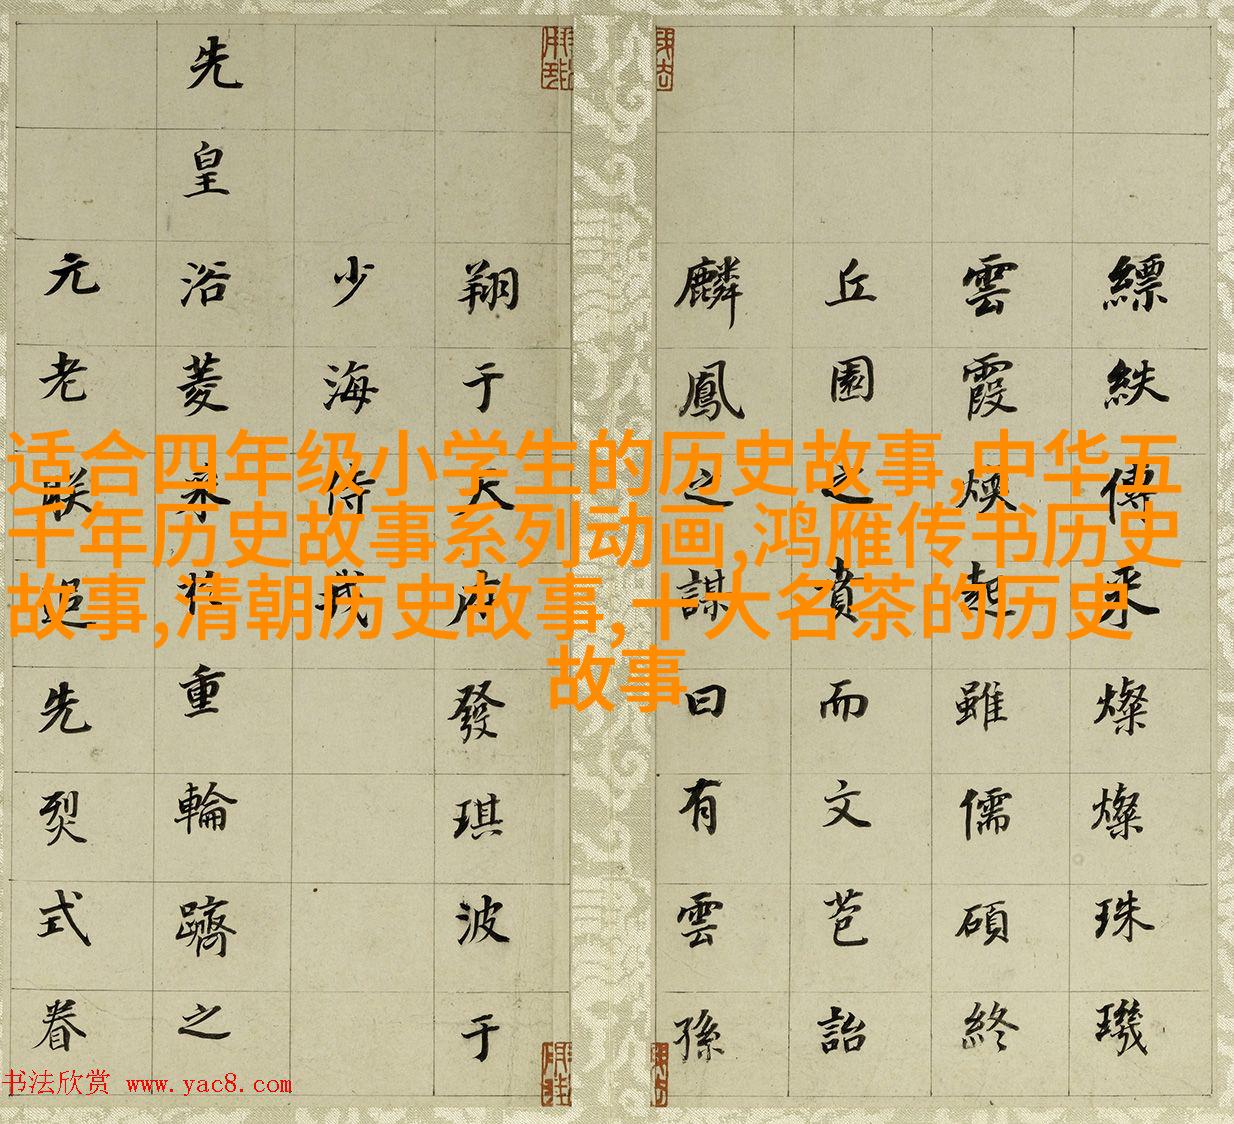 縹紩傳承燦燦珠璣
雲霞煥起雖儒碩終
丘園之賁而文苞詒
麟鳳之謀曰有雲孫
翔于天府發琪波于
少海侍我
先皇浴菱重輪躋之
元老朕追先烈式眷
适合四年级小学生的历史故事,中华五
千年历史故事系列动画,鸿雁传书历史
故事,清朝历史故事,十大名茶的历史
故事
书法欣赏 www.yac8.com